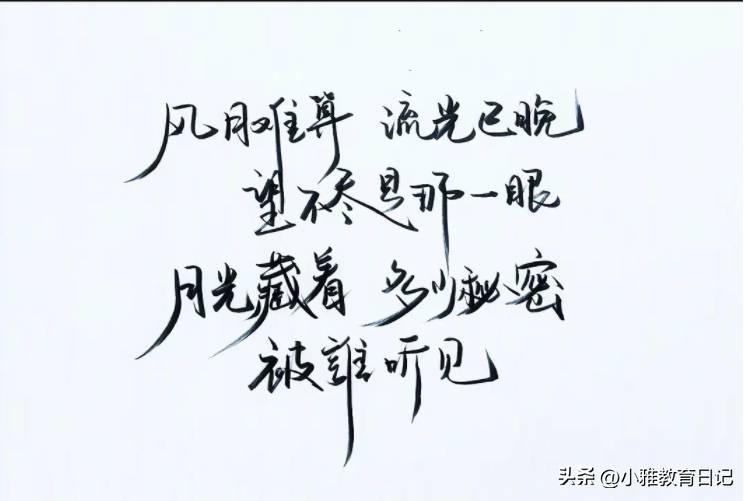 风月难算 流光已晚
望不尽是那一眼
月光藏着 多少秘密
被誰听见
头条 @小雅教育日记